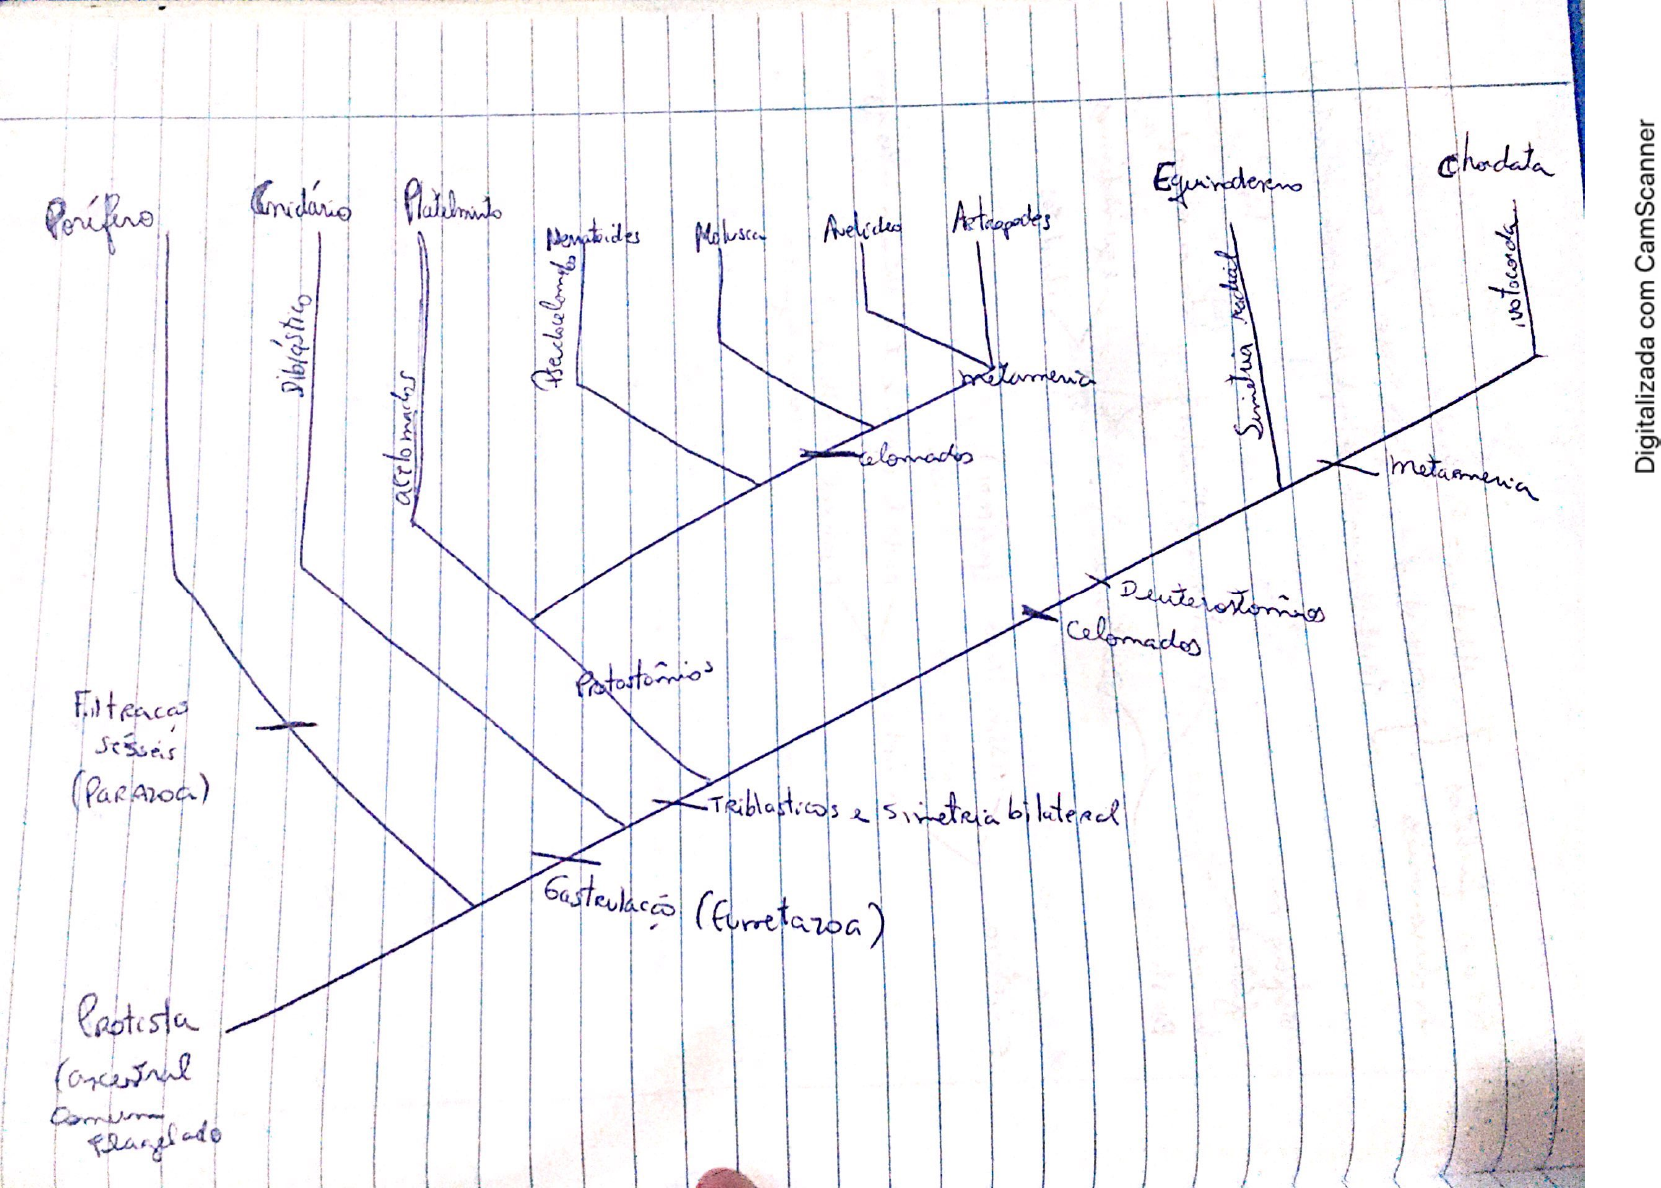 Chordata
Equinodermo
Porífero
Cnidário
Platelminto
Nematoides
Molusca
Anelideo
Artropodes
Pseudocelomados
Diblástico
acelomados
Simetria radial
notocorda
metameria
celomados
Metameria
Deuterostômios
Celomados
Protostômios
Filtracao
sésseis
(PARAZOA)
TRiblasticos e Simetria bilateral
Gastrulação (Eumetazoa)
Protista
(ancestral
comum
flagelado
Digitalizada com CamScanner